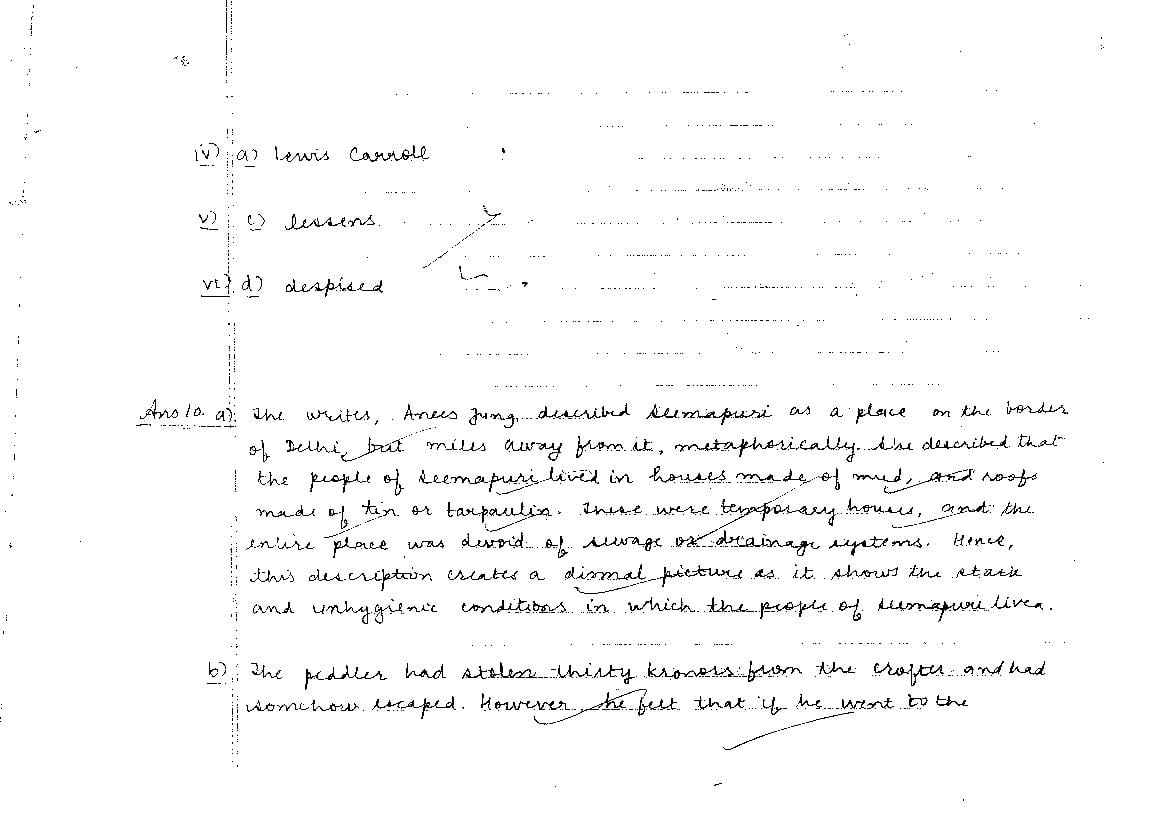 iv) a) Lewis Carroll
v) c) lessens.
vi) d) despised
Ans 10. a) The writer, Anees Jung, described Seemapuri as a place on the border
of Delhi, but miles away from it, metaphorically. She described that
the people of Seemapuri lived in houses made of mud, and roofs
made of tin or tarpaulin. These were temporary houses, and the
entire place was devoid of sewage or drainage systems. Hence,
this description creates a dismal picture as it shows the stark
and unhygienic conditions in which the people of Seemapuri lived.
b) The peddler had stolen thirty kronors from the crofter and had
somehow escaped. However, he felt that if he went to the